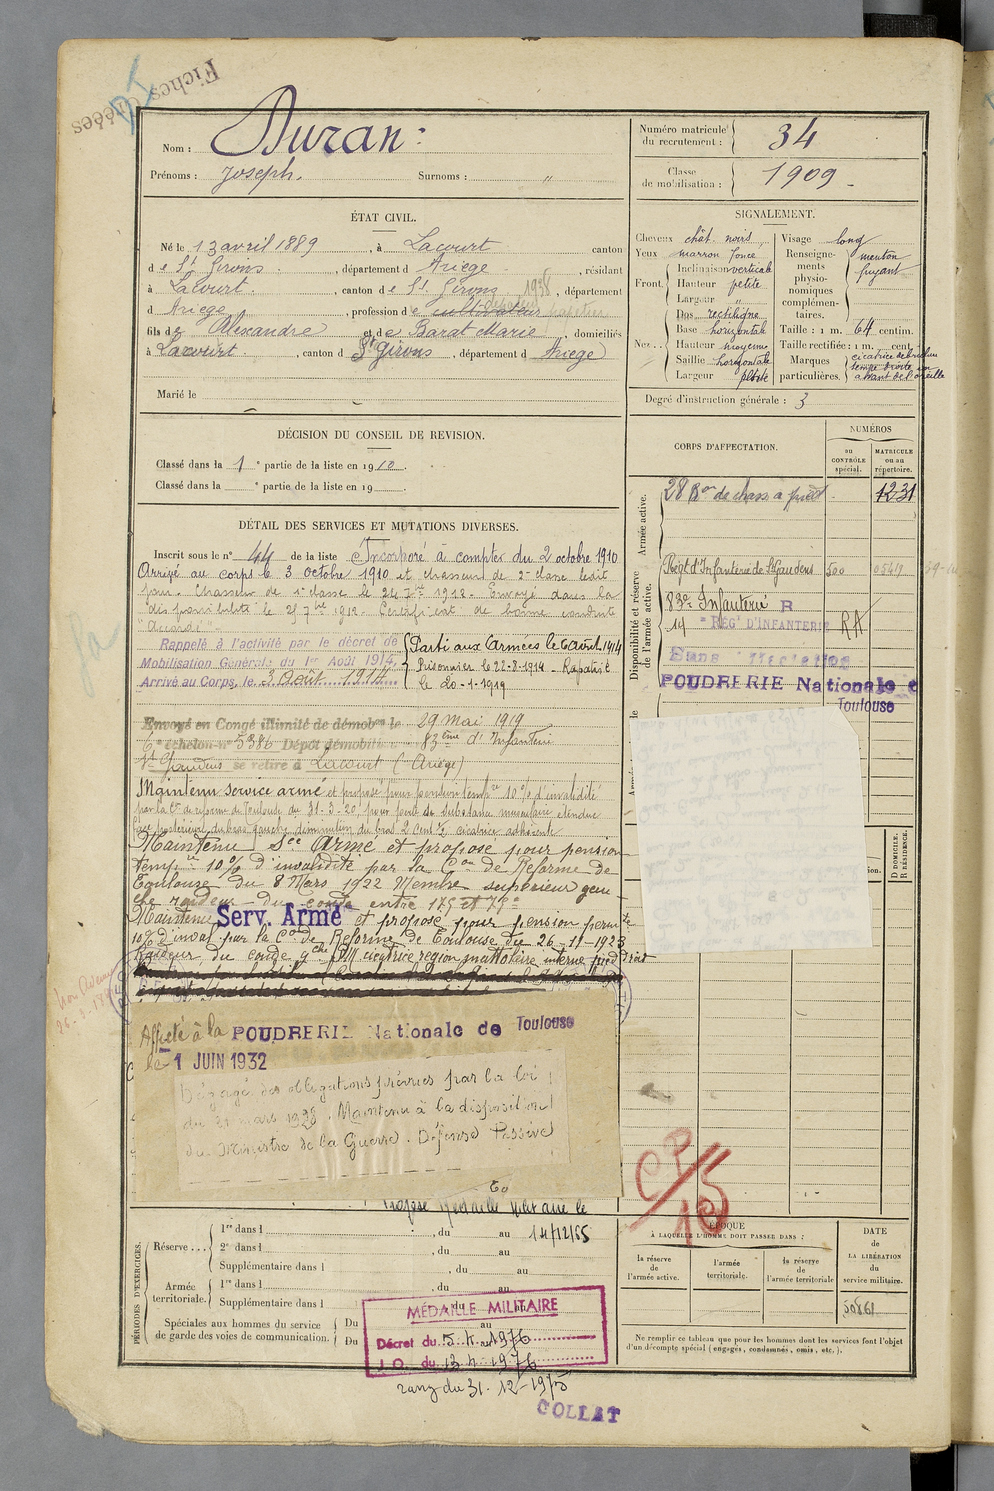 Fiches
Nom : Duran :
Prénoms : Joseph. Surnoms : "
Numéro matricule du recrutement : 34
Classe de mobilisation : 1909
ÉTAT CIVIL.
Né le 13 avril 1889, à Lacourt canton
de St Girons, département d Ariège, résidant
à Lacourt, canton de St Girons 1938, département
d Ariège, profession de cultivateur papetier
fils de Alexandre et de Barat Marie, domiciliés
à Lacourt, canton d St Girons, département d Ariège
Marié le
SIGNALEMENT.
Cheveux chât. noirs
Yeux marron foncé
Front. Inclinaison verticale
Hauteur petite
Largeur "
Nez Dos rectiligne
Base horizontale
Hauteur moyenne
Saillie horizontale
Largeur petite
Visage long
Renseignements physionomiques complémentaires. menton fuyant
Taille : 1 m. 64 centim.
Taille rectifiée : 1 m. cent.
Marques particulières. cicatrice de
tempe droite en
avant de l'oreille
Degré d'instruction générale : 3
DÉCISION DU CONSEIL DE REVISION.
Classé dans la 1e partie de la liste en 1910.
Classé dans la e partie de la liste en 19
CORPS D'AFFECTATION.
NUMÉROS
au CONTRÔLE spécial.
MATRICULE ou au répertoire.
Armée active.
28 Bon de chass à pied 1231
Disponibilité et réserve de l'armée active.
Regt d'Infanterie de St Gaudens 500
83e Infanterie R
14 "REGt D'INFANTERIE RA
Sans affectation
POUDRERIE Nationale de
Toulouse
D DOMICILE.
R RÉSIDENCE.
DÉTAIL DES SERVICES ET MUTATIONS DIVERSES.
Inscrit sous le n° 44 de la liste Incorporé à compter du 2 octobre 1910
Arrivé au corps le 3 octobre 1910 et chasseur de 2e classe ledit
jour. Chasseur de 1e classe le 24 7bre 1912. Envoyé dans la
"disponibilité" le 25 7bre 1912. Certificat de bonne conduite
"Accordé".
Rappelé à l'activité par le décret de
Mobilisation Générale du 1er Août 1914.
Arrivé au Corps, le 3 Août 1914
Parti aux Armées le 6 août 1914
Prisonnier le 22-8-1914 - Rapatrié
le 20-1-1919
Envoyé en Congé illimité de démobon le 29 Mai 1919
6e échelon n° 5386 Dépôt démobili 83ème d'Infanterie
St Gaudens se retire à Lacourt (Ariège)
Maintenu service armé et proposé pour pension tempre 10% d'invalidité
par la Con de réforme de Toulouse du 31-3-20, pour perte de substance musculaire étendue
face postérieure du bras gauche, diminution du bras 2 cent ½ cicatrice adhérente
Maintenu Sce Armé et proposé pour pension
tempre 10% d'invalidité par la Con de Réforme de
Toulouse du 8 Mars 1922 Membre supérieur gau
che raideur du coude entre 175 et 75°
Maintenu Serv. Armé et proposé pour pension perm
10% d'inval par la Con de Réforme de Toulouse du 26-11-1923
Raideur du coude gche cicatrice région
Affecté à la POUDRERIE Nationale de Toulouse
le 1 JUIN 1932
Dégagé des obligations prévues par la loi
du 31 mars 1928. Maintenu à la disposition
du Ministre de la Guerre. Défense Passive
Médaille Militaire le
14/12/65
CP/15
PÉRIODES D'EXERCICES.
Réserve... 1re dans l , du au
2e dans l , du au
Supplémentaire dans l , du au
Armée territoriale. 1re dans l , du au
Supplémentaire dans l du au
Spéciales aux hommes du service de garde des voies de communication. Du au
Du au
MÉDAILLE MILITAIRE
Décret du 5.4.1976
J. O. du 13.4.1976
rang du 31.12.1975
COLLAT
ÉPOQUE
À LAQUELLE L'HOMME DOIT PASSER DANS :
la réserve de l'armée active.
l'armée territoriale.
la réserve de l'armée territoriale
DATE de LA LIBÉRATION du service militaire.
Ne remplir ce tableau que pour les hommes dont les services font l'objet
d'un décompte spécial (engagés, condamnés, omis, etc.).